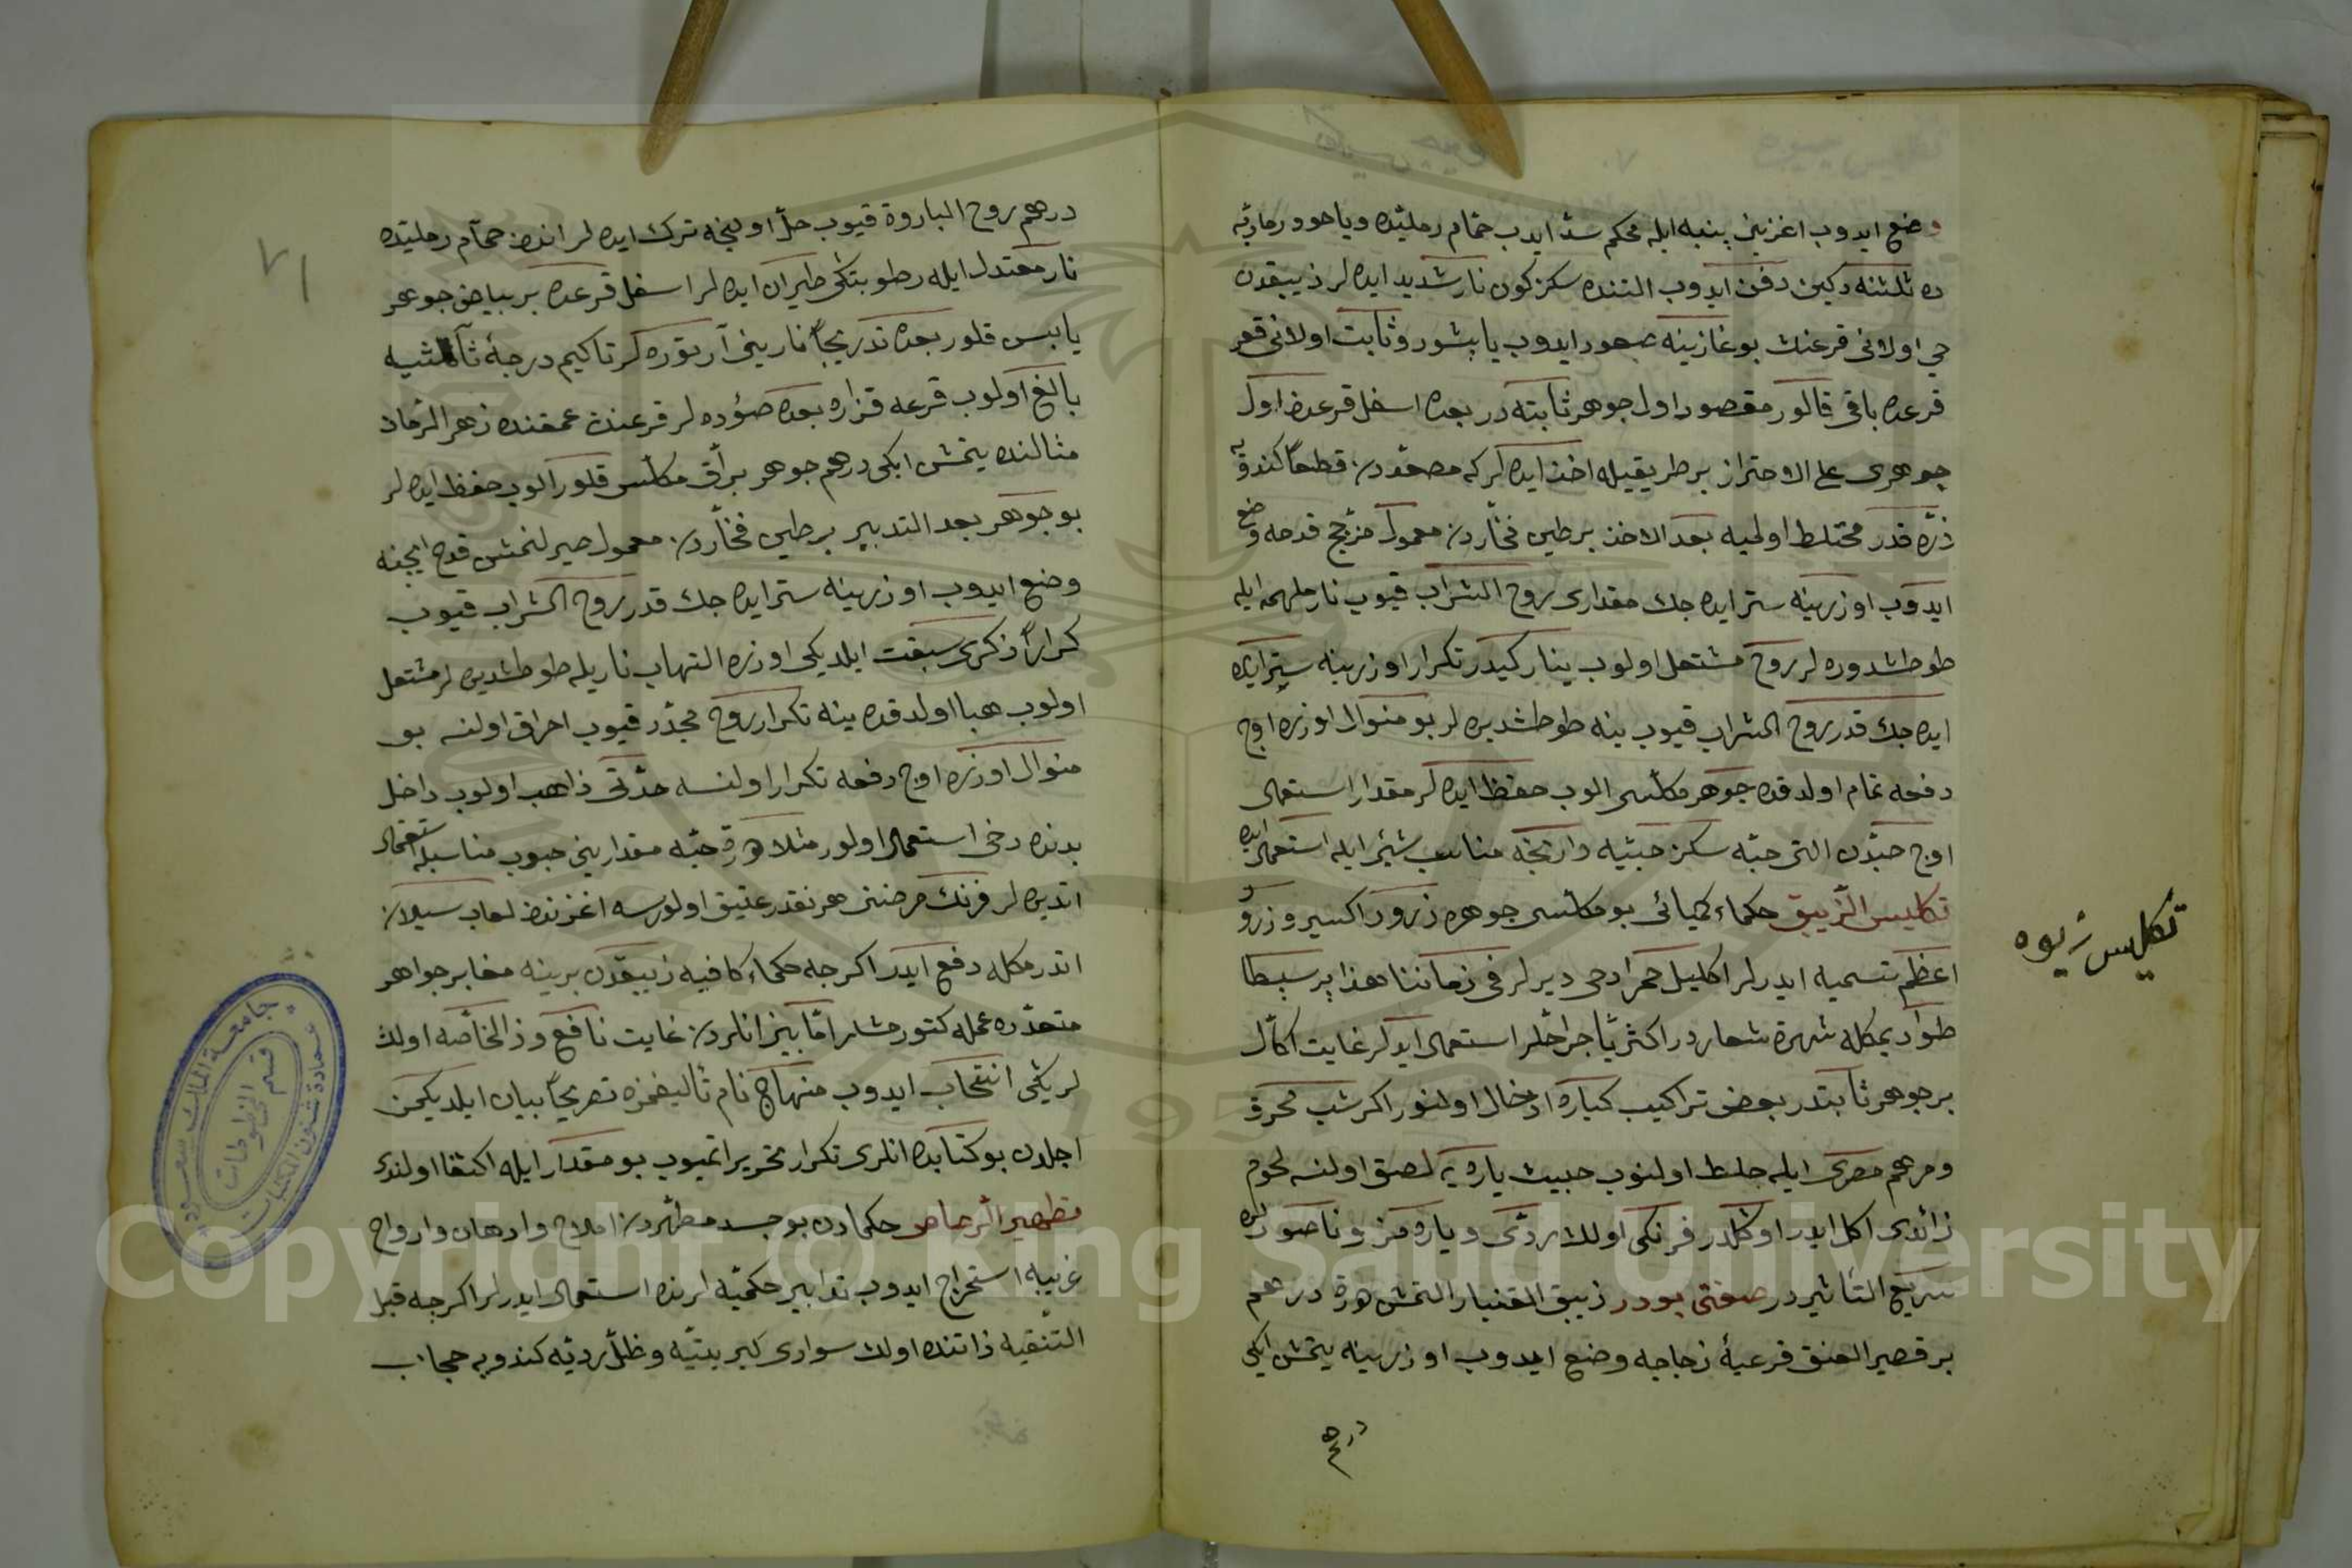 وضع ايدوب اغزينى پنبه ايله محكم سدّ ايدوب حمّام رمليّده وياخود رماديّه
ده ثلثنه دكين دفن ايدوب التنده سكز كون نار شديد ايده لر زيبقدن
حي اولانى قرعنك بوغازينه صعود ايدوب يابشور وثابت اولانى قعر
قرعده باقى قالور مقصود اول جوهر ثابته در بعده اسفل قرعدن اول
جوهرى على الاحتراز بر طريقيله اخذ ايده لر كه مصعّددن قطعاً كندويه
ذرّه قدر مختلط اولميه بعد الاخذ بر طين فخّاردن معمول مزجّج قدحه وضع
ايدوب اوزرينه ستر ايده جك مقدارى روح الشراب قيوب نار ملهبه ايله
طوطاشدوره لر روح مشتعل اولوب ينار كيدر تكرار اوزرينه ستر ايده
ايده جك قدر روح الشراب قيوب ينه طوطاشديره لر بو منوال اوزره اوچ
دفعه تمام اولدقده جوهر مكلّسى الوب حفظ ايده لر مقدار استعمالى
اوچ حبّدن التى حبّه سكز حبّيه وارنجه مناسب شيئر ايله استعمال ايده لر
تكليس الزّيبق حكماء كيميائى بو مكلّس جوهره زرور اكسير و زرور
اعظم تسميه ايدرلر اكليل حمرا دخى ديرلر فى زماننا هذا پرسپيطا
طوادیمكله شهرة شعاردر اكثريّا جرّاحلر استعمال ايدرلر غايت اكّال
بر جوهر ثابتدر بعض تراكيب كباره ادخال اولنور اكر شب محرق
و مرهم مصرى ايله خلط اولنوب خبيث ياره يه لصق اولنسه لحوم
زائدى اكل ايدر اوكلدر فرنكى اولان ردّى و ياره مزمن و ناصورلره
سريع التأثيردر صفتى بودر زيبق القنبار التمش درهم
بر قصير العنق قرعيۀ زجاجه وضع ايدوب اوزرينه يتمش ايكى
درهم
تكليس زيوه
٧١
درهم روح الباروة قيوب حلّ اولنجه ترك ايده لر اندن حمّام رمليّده
نار معتدل ايله رطوبتكى طيران ايده لر اسفل قرعده بر بياض جوهر
يابس قلور بعده تدريجاً نارينى آرتوره لر تاكيم درجۀ ثالثيه
بالغ اولوب قرعه قزاره بعده صؤوده لر قرعنك عمقنده زهر الرّمان
مثالنده يتمش ايكى درهم جوهر برّاق مكلّس قلور الوب حفظ ايده لر
بو جوهر بعد التدبير بر طين فخّاردن معمول صيرلنمش قدح ايچنه
وضع ايدوب اوزرينه ستر ايده جك قدر روح الشراب قيوب
كراراً ذكرى سبقت ايلديكى اوزره التهاب ناريله طوطاشديره لر مشتعل
اولوب هبا اولدقده ينه تكرار روح مجدّد قيوب احراق اولنه بو
منوال اوزره اوچ دفعه تكرار اولنسه حدّتى ذاهب اولوب داخل
بدنده دخى استعمال اولور مثلا درت حبّه مقدارينى حبوب مناسبله استعمال
اتديره لر فرنك مرضنى هر نقدر عتيق اولورسه اغزندن لعاب سيلان
اتدرمكله دفع ايدر اكرچه حكماء كافيه زيبقدن برينه مغاير جواهر
متعدّده عمله كتورمشلر امّا بيز انلردن غايت نافع و ذالخاصّه اولان
لريكى انتخاب ايدوب منهاج نام تأليفمزده تصريحاً بيان ايلديكمز
اجلدن بو كتابده انلرى تكرار تحرير اتميوب بو مقدار ايله اكتفا اولندى
تطهير الرّصاص حكمادن بو جسد مطهّردن املاح و ادهان و ارواح
غريبه استخراج ايدوب تدابير حكميّه لرنده استعمال ايدرلر اكرچه قبل
التّنقيه ذاتنده اولان سوارى كبريتيّه و ظلّ رديّه كندويه حجاب
جامعة الملك سعود
عمادة شئون المكتبات
قسم المخطوطات
Copyright © King Saud University
1957